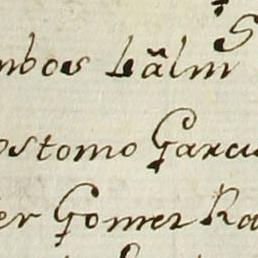 S
mbos Lãlm
ostomo Garcia
er Gomez Ra